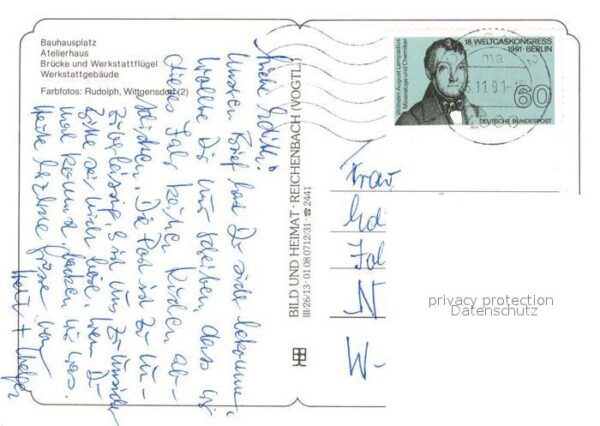 Bauhausplatz
Atelierhaus
Brücke und Werkstattflügel
Werkstattgebäude
Farbfotos: Rudolph, Wittgensdorf (2)
Liebe Edith!
Unseren Brief hast Du sicher bekommen,
wollte Dir nur schreiben, dass wir
dieses Jahr keinen Kuchen ab-
schicken. Die Post ist zu un-
zuverlässig, es ist uns zu unsicher
Bitte sei nicht böse. Wenn Du
mal kommst, backen wir was.
Heute herzliche Grüsse von
BILD UND HEIMAT · REICHENBACH (VOGTL)
III/26/13 · 01 08 0712/31 · ☎ 2441
18. WELTGASKONGRESS
1991 · BERLIN
Wilhelm August Lampadius
Mineraloge und Chemiker
60
DEUTSCHE BUNDESPOST
Frau
Ed
N
W-
privacy protection
Datenschutz